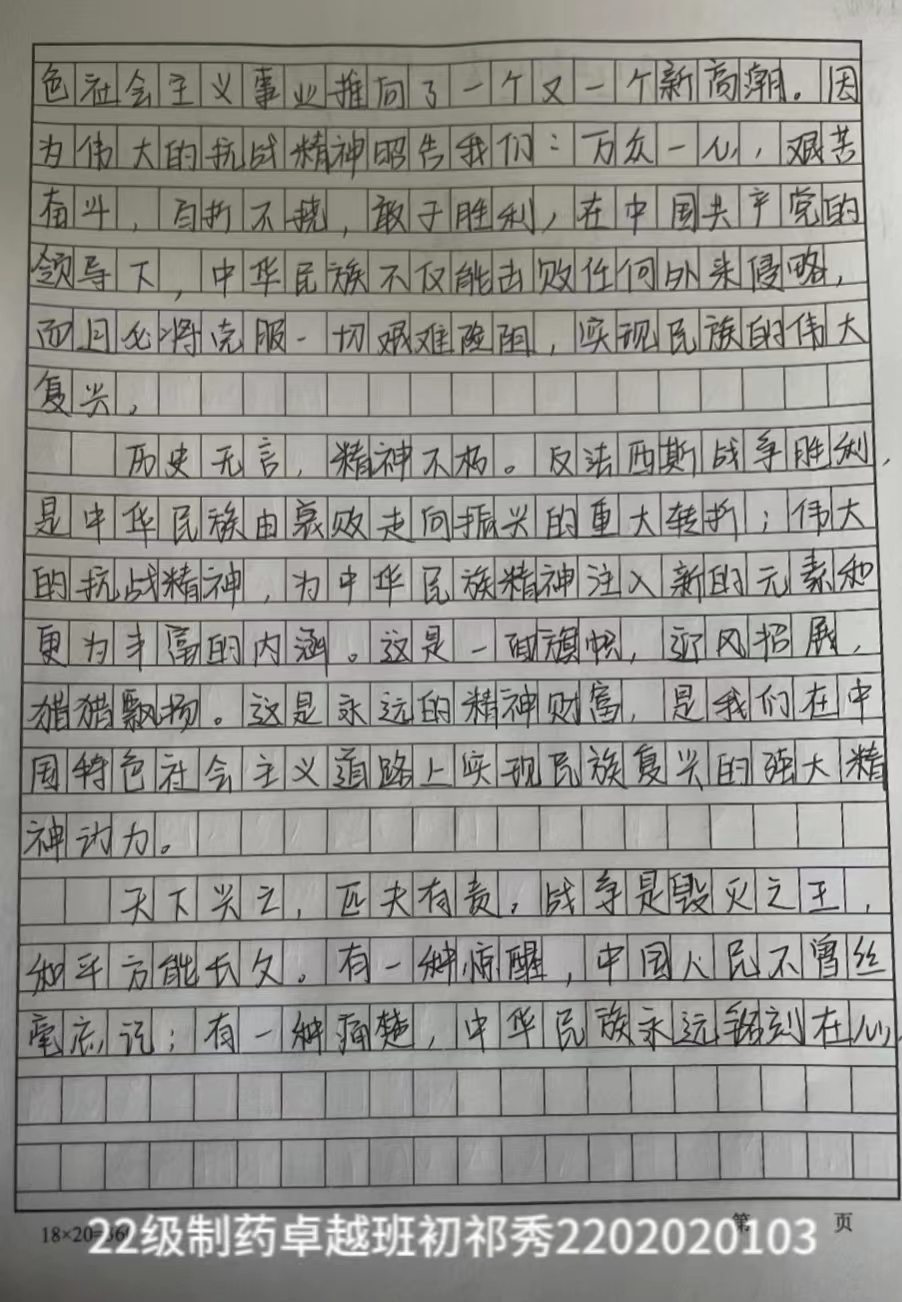 色社会主义事业推向了一个又一个新高潮。因
为伟大的抗战精神昭告我们：万众一心，艰苦
奋斗，百折不挠，敢于胜利，在中国共产党的
领导下，中华民族不仅能击败任何外来侵略，
而且必将克服一切艰难险阻，实现民族的伟大
复兴，
历史无言，精神不朽。反法西斯战争胜利，
是中华民族由衰败走向振兴的重大转折；伟大
的抗战精神，为中华民族精神注入新的元素和
更为丰富的内涵。这是一面旗帜，迎风招展，
猎猎飘扬。这是永远的精神财富，是我们在中
国特色社会主义道路上实现民族复兴的强大精
神动力。
天下兴亡，匹夫有责。战争是毁灭之王，
和平方能长久。有一种惊醒，中国人民不曾丝
毫忘记；有一种痛楚，中华民族永远铭刻在心，
18×20=360
第 页
22级制药卓越班初祁秀2202020103